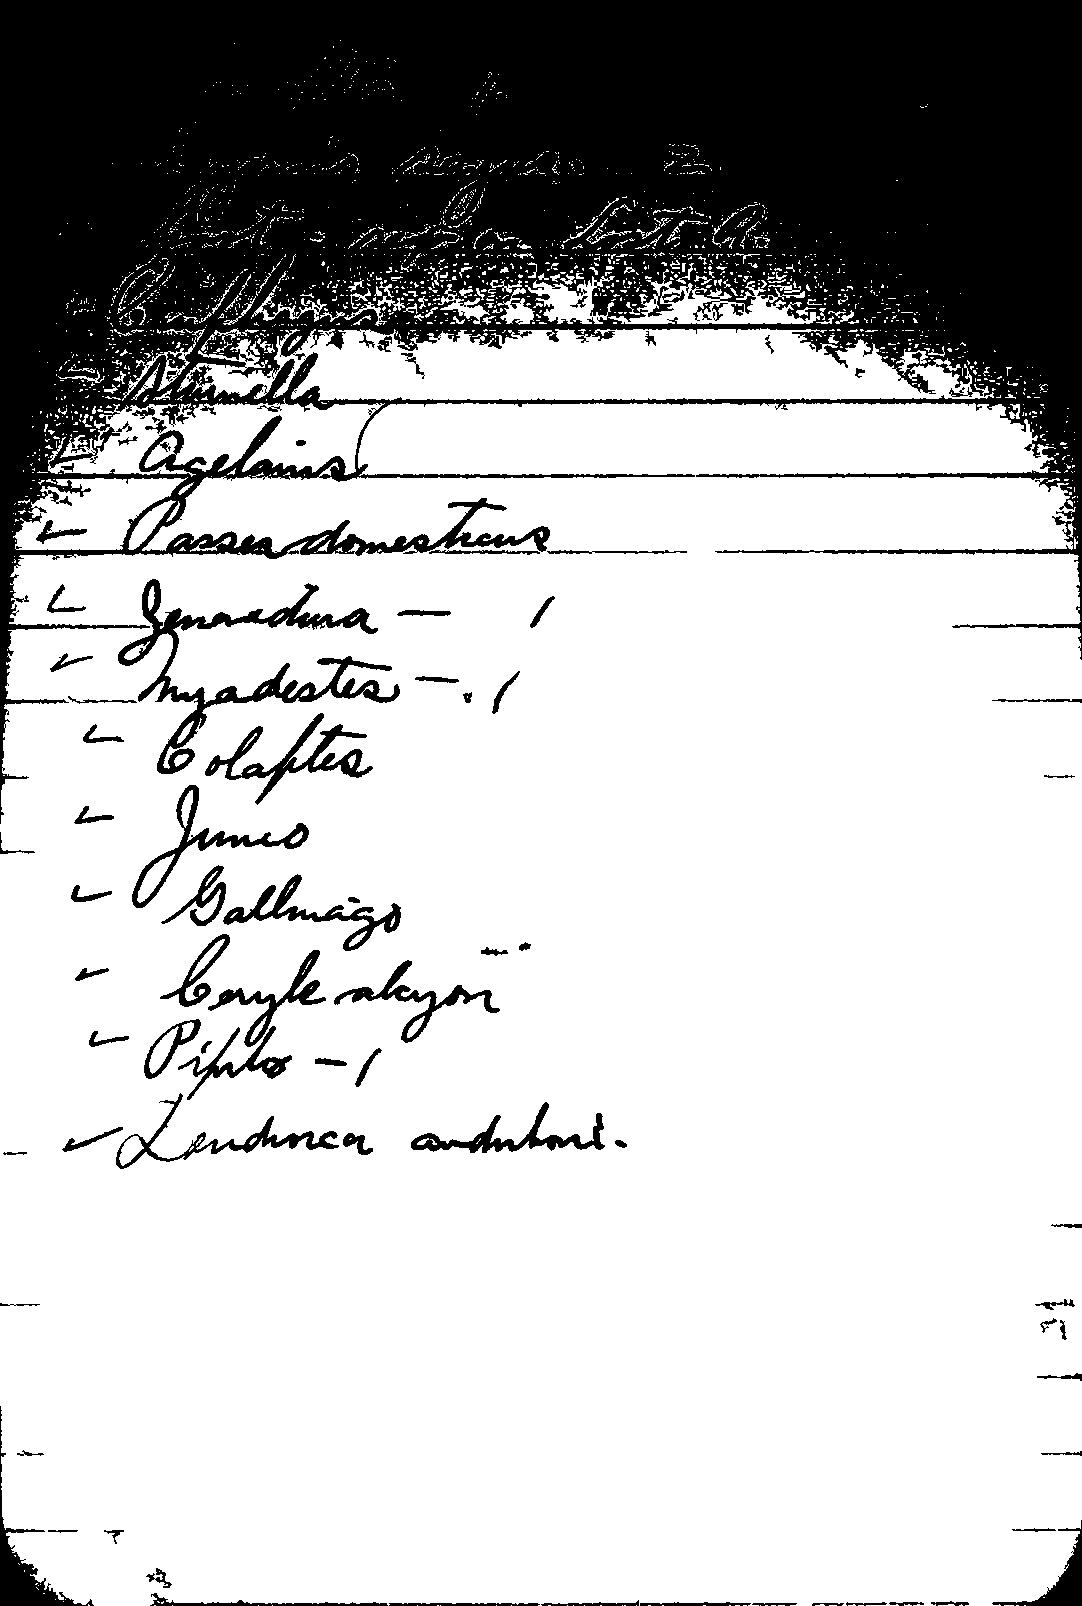 Sturnella
Agelaius
Passer domesticus
Zenaidura — 1
Myadestes — . 1
Colaptes
Junco
Gallinago
Ceryle alcyon
Pipilo — 1
Dendroica auduboni.